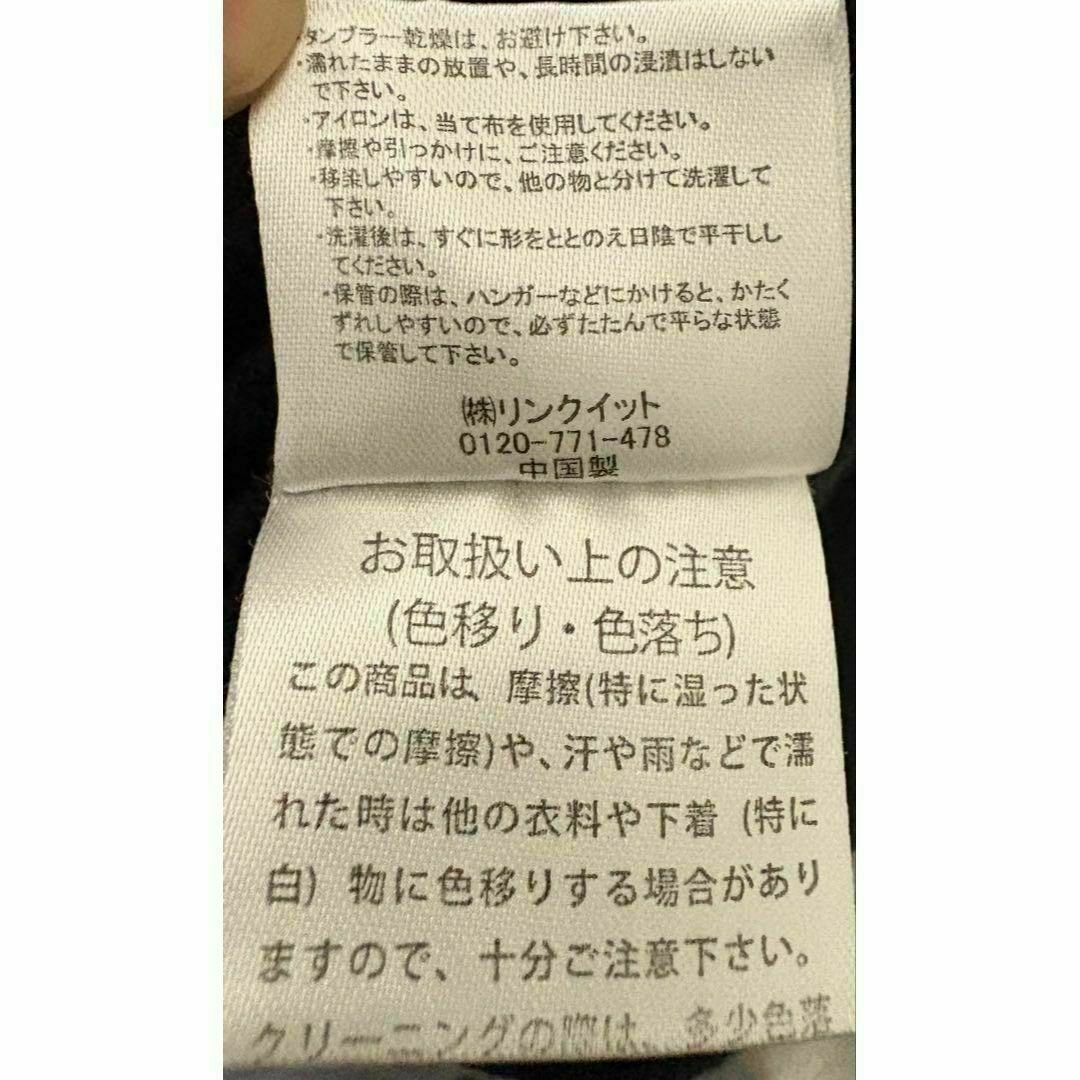 タンブラー乾燥は、お避け下さい。
・濡れたままの放置や、長時間の浸漬はしない
で下さい。
・アイロンは、当て布を使用してください。
・摩擦や引っかけに、ご注意ください。
・移染しやすいので、他の物と分けて洗濯して
下さい。
・洗濯後は、すぐに形をととのえ日陰で平干しし
てください。
・保管の際は、ハンガーなどにかけると、かたく
ずれしやすいので、必ずたたんで平らな状態
で保管して下さい。
㈱リンクイット
0120-771-478
中国製
お取扱い上の注意
(色移り・色落ち)
この商品は、摩擦(特に湿った状
態での摩擦)や、汗や雨などで濡
れた時は他の衣料や下着 (特に
白) 物に色移りする場合があり
ますので、十分ご注意下さい。
クリーニングの際は、多少色落